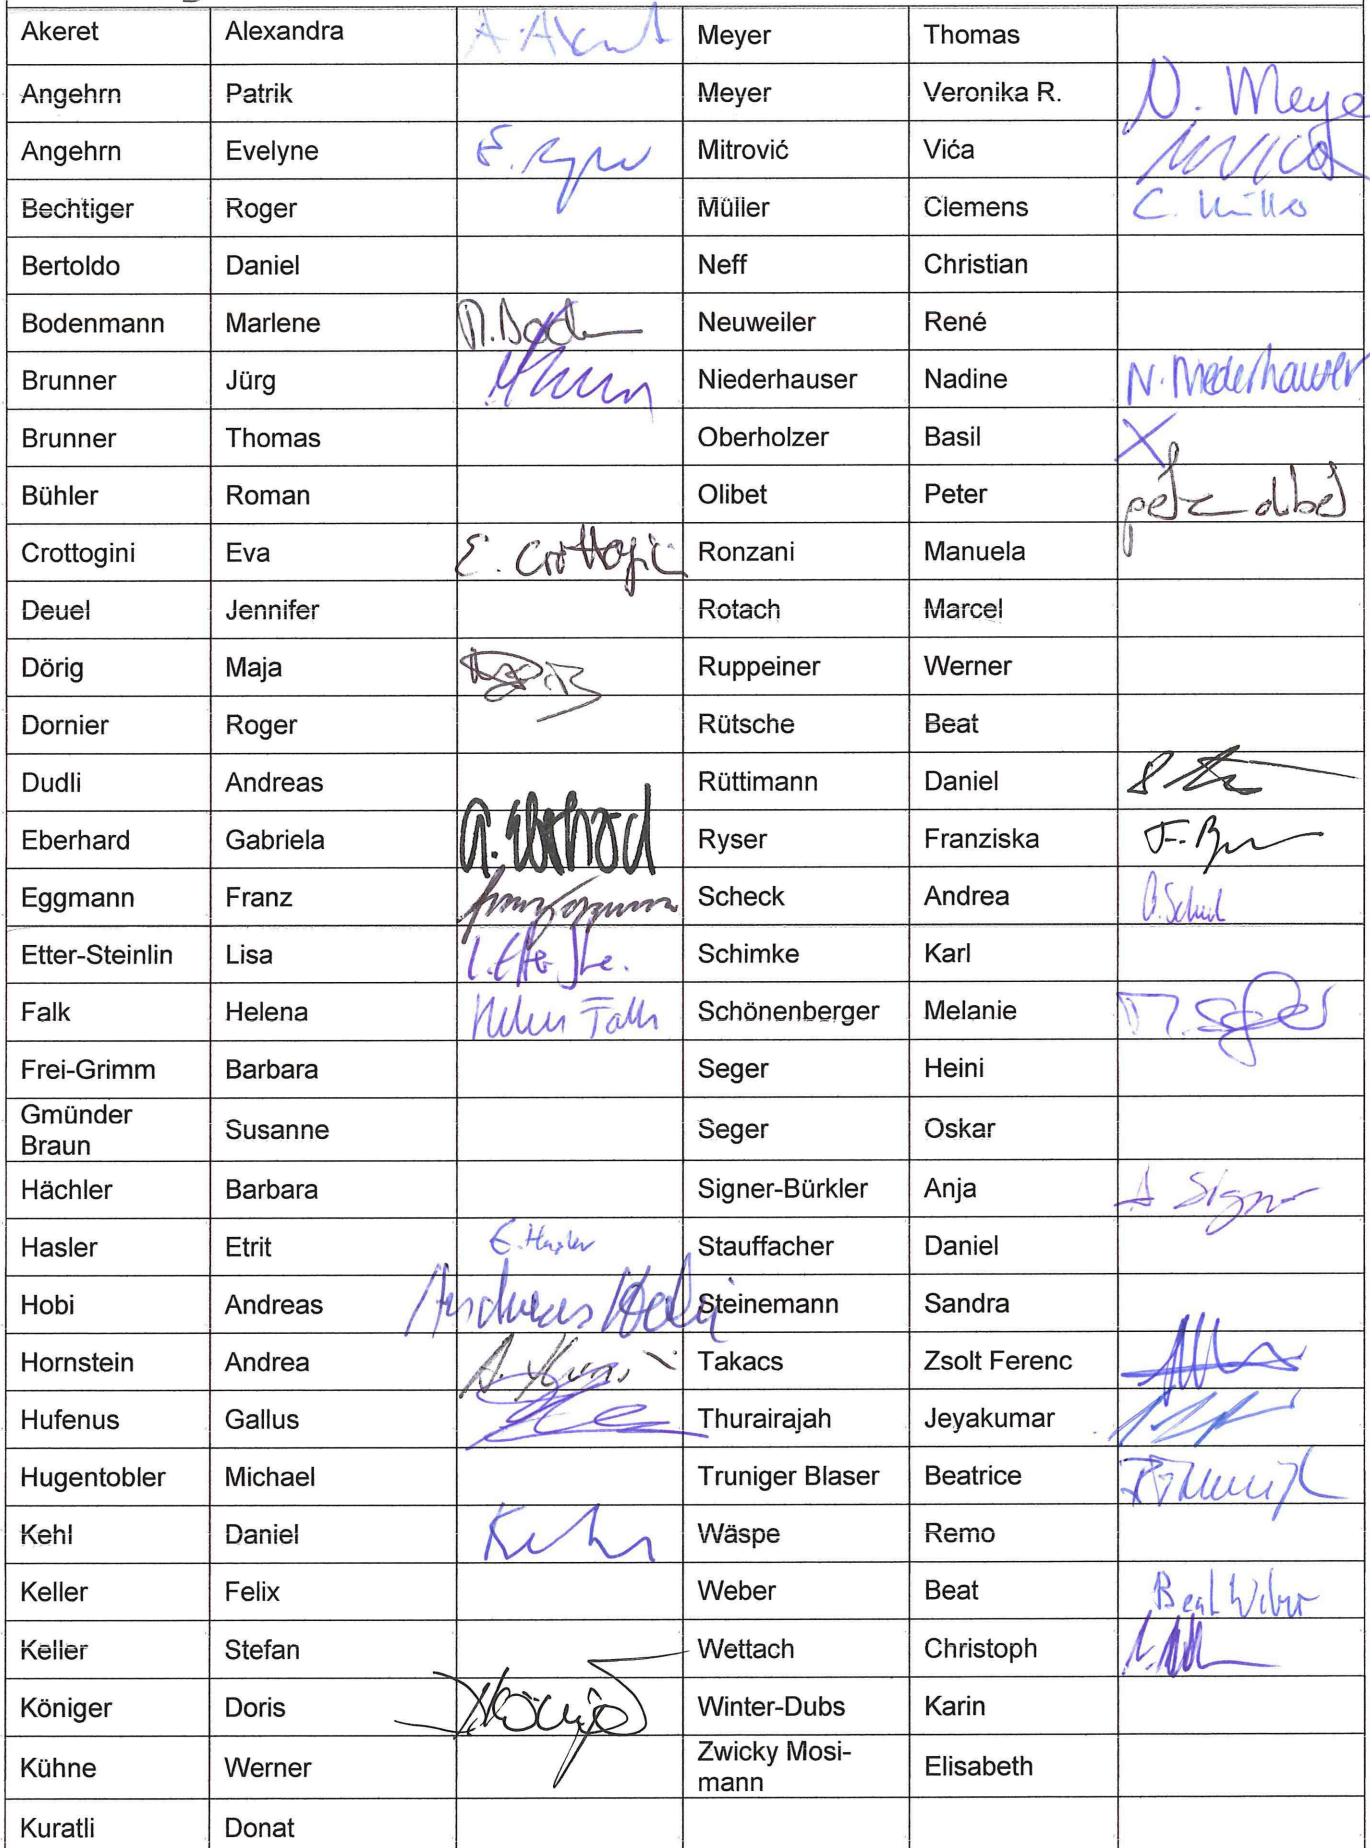 Akeret Alexandra A. Akeret Meyer Thomas
Angehrn Patrik Meyer Veronika R. V. Meye
Angehrn Evelyne Mitrović Vića
Bechtiger Roger Müller Clemens C. Müller
Bertoldo Daniel Neff Christian
Bodenmann Marlene M. Bode Neuweiler René
Brunner Jürg Niederhauser Nadine N. Niederhauser
Brunner Thomas Oberholzer Basil X
Bühler Roman Olibet Peter peter olibet
Crottogini Eva E. Crottogini Ronzani Manuela
Deuel Jennifer Rotach Marcel
Dörig Maja Ruppeiner Werner
Dornier Roger Rütsche Beat
Dudli Andreas Rüttimann Daniel
Eberhard Gabriela G. Eberhard Ryser Franziska F. Ryser
Eggmann Franz Franz Eggmann Scheck Andrea A. Scheck
Etter-Steinlin Lisa L. Etter Ste. Schimke Karl
Falk Helena Helena Falk Schönenberger Melanie
Frei-Grimm Barbara Seger Heini
Gmünder
Braun Susanne Seger Oskar
Hächler Barbara Signer-Bürkler Anja A Signer
Hasler Etrit E. Hasler Stauffacher Daniel
Hobi Andreas Andreas Hobi Steinemann Sandra
Hornstein Andrea Takacs Zsolt Ferenc
Hufenus Gallus Thurairajah Jeyakumar
Hugentobler Michael Truniger Blaser Beatrice
Kehl Daniel Kehl Wäspe Remo
Keller Felix Weber Beat Beat Weber
Keller Stefan Wettach Christoph
Königer Doris D. Königer Winter-Dubs Karin
Kühne Werner Zwicky Mosi-
mann Elisabeth
Kuratli Donat